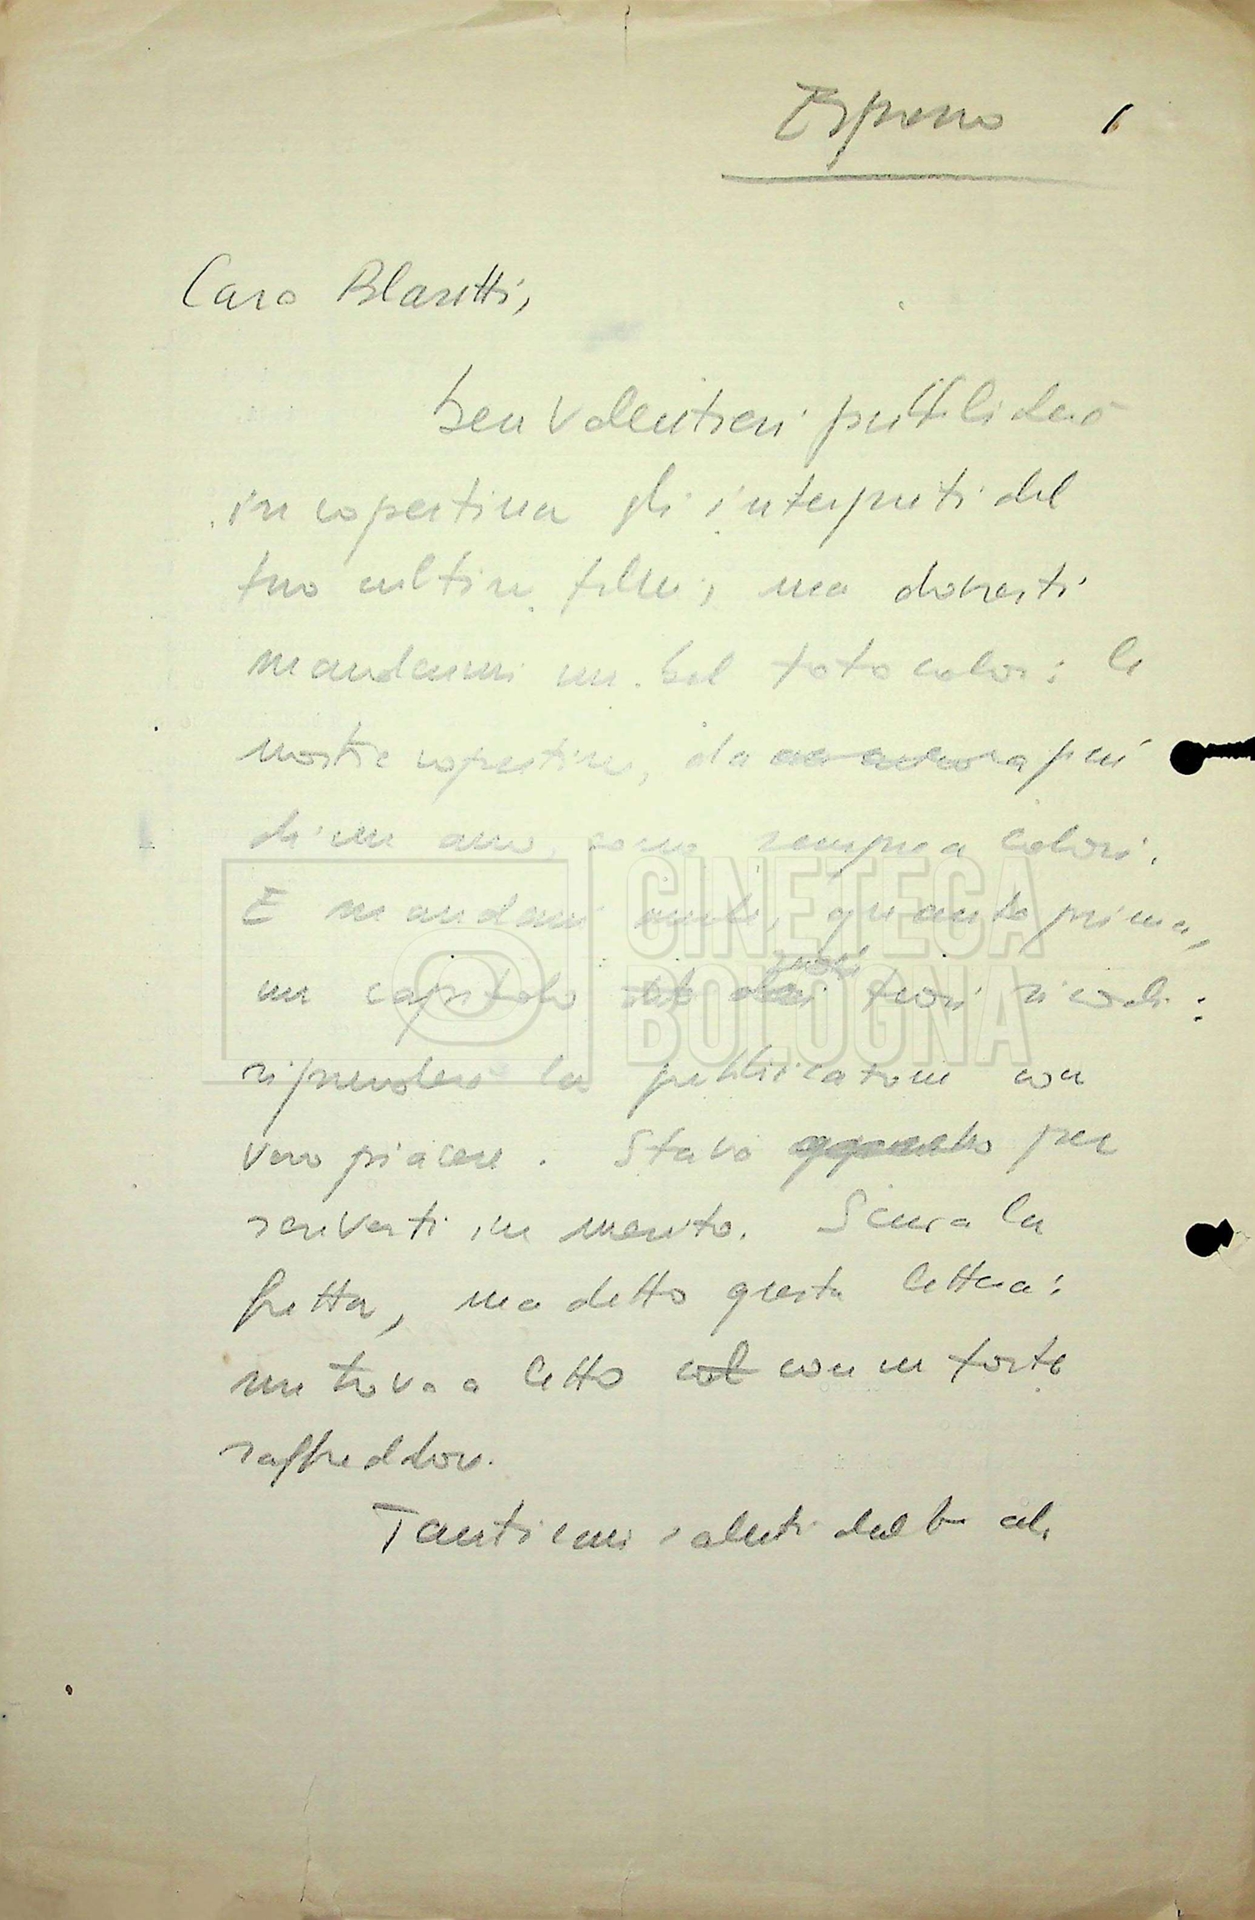 Espresso
Caro Blasetti,
ben volentieri pubblicherò
in copertina gli interpreti del
tuo ultimo film; ma dovresti
mandarmi un bel fotocolor: le
nostre copertine, da più
di un anno, sono sempre a colori.
E mandami anche, quanto prima,
un capitolo dei tuoi ricordi:
riprenderò la pubblicazione con
vero piacere. Stavo per
scriverti in merito. Scusa la
fretta, ma detto questa lettera:
mi trovo a letto col con un forte
raffreddore.
Tantissimi saluti dal
CINETECA
BOLOGNA